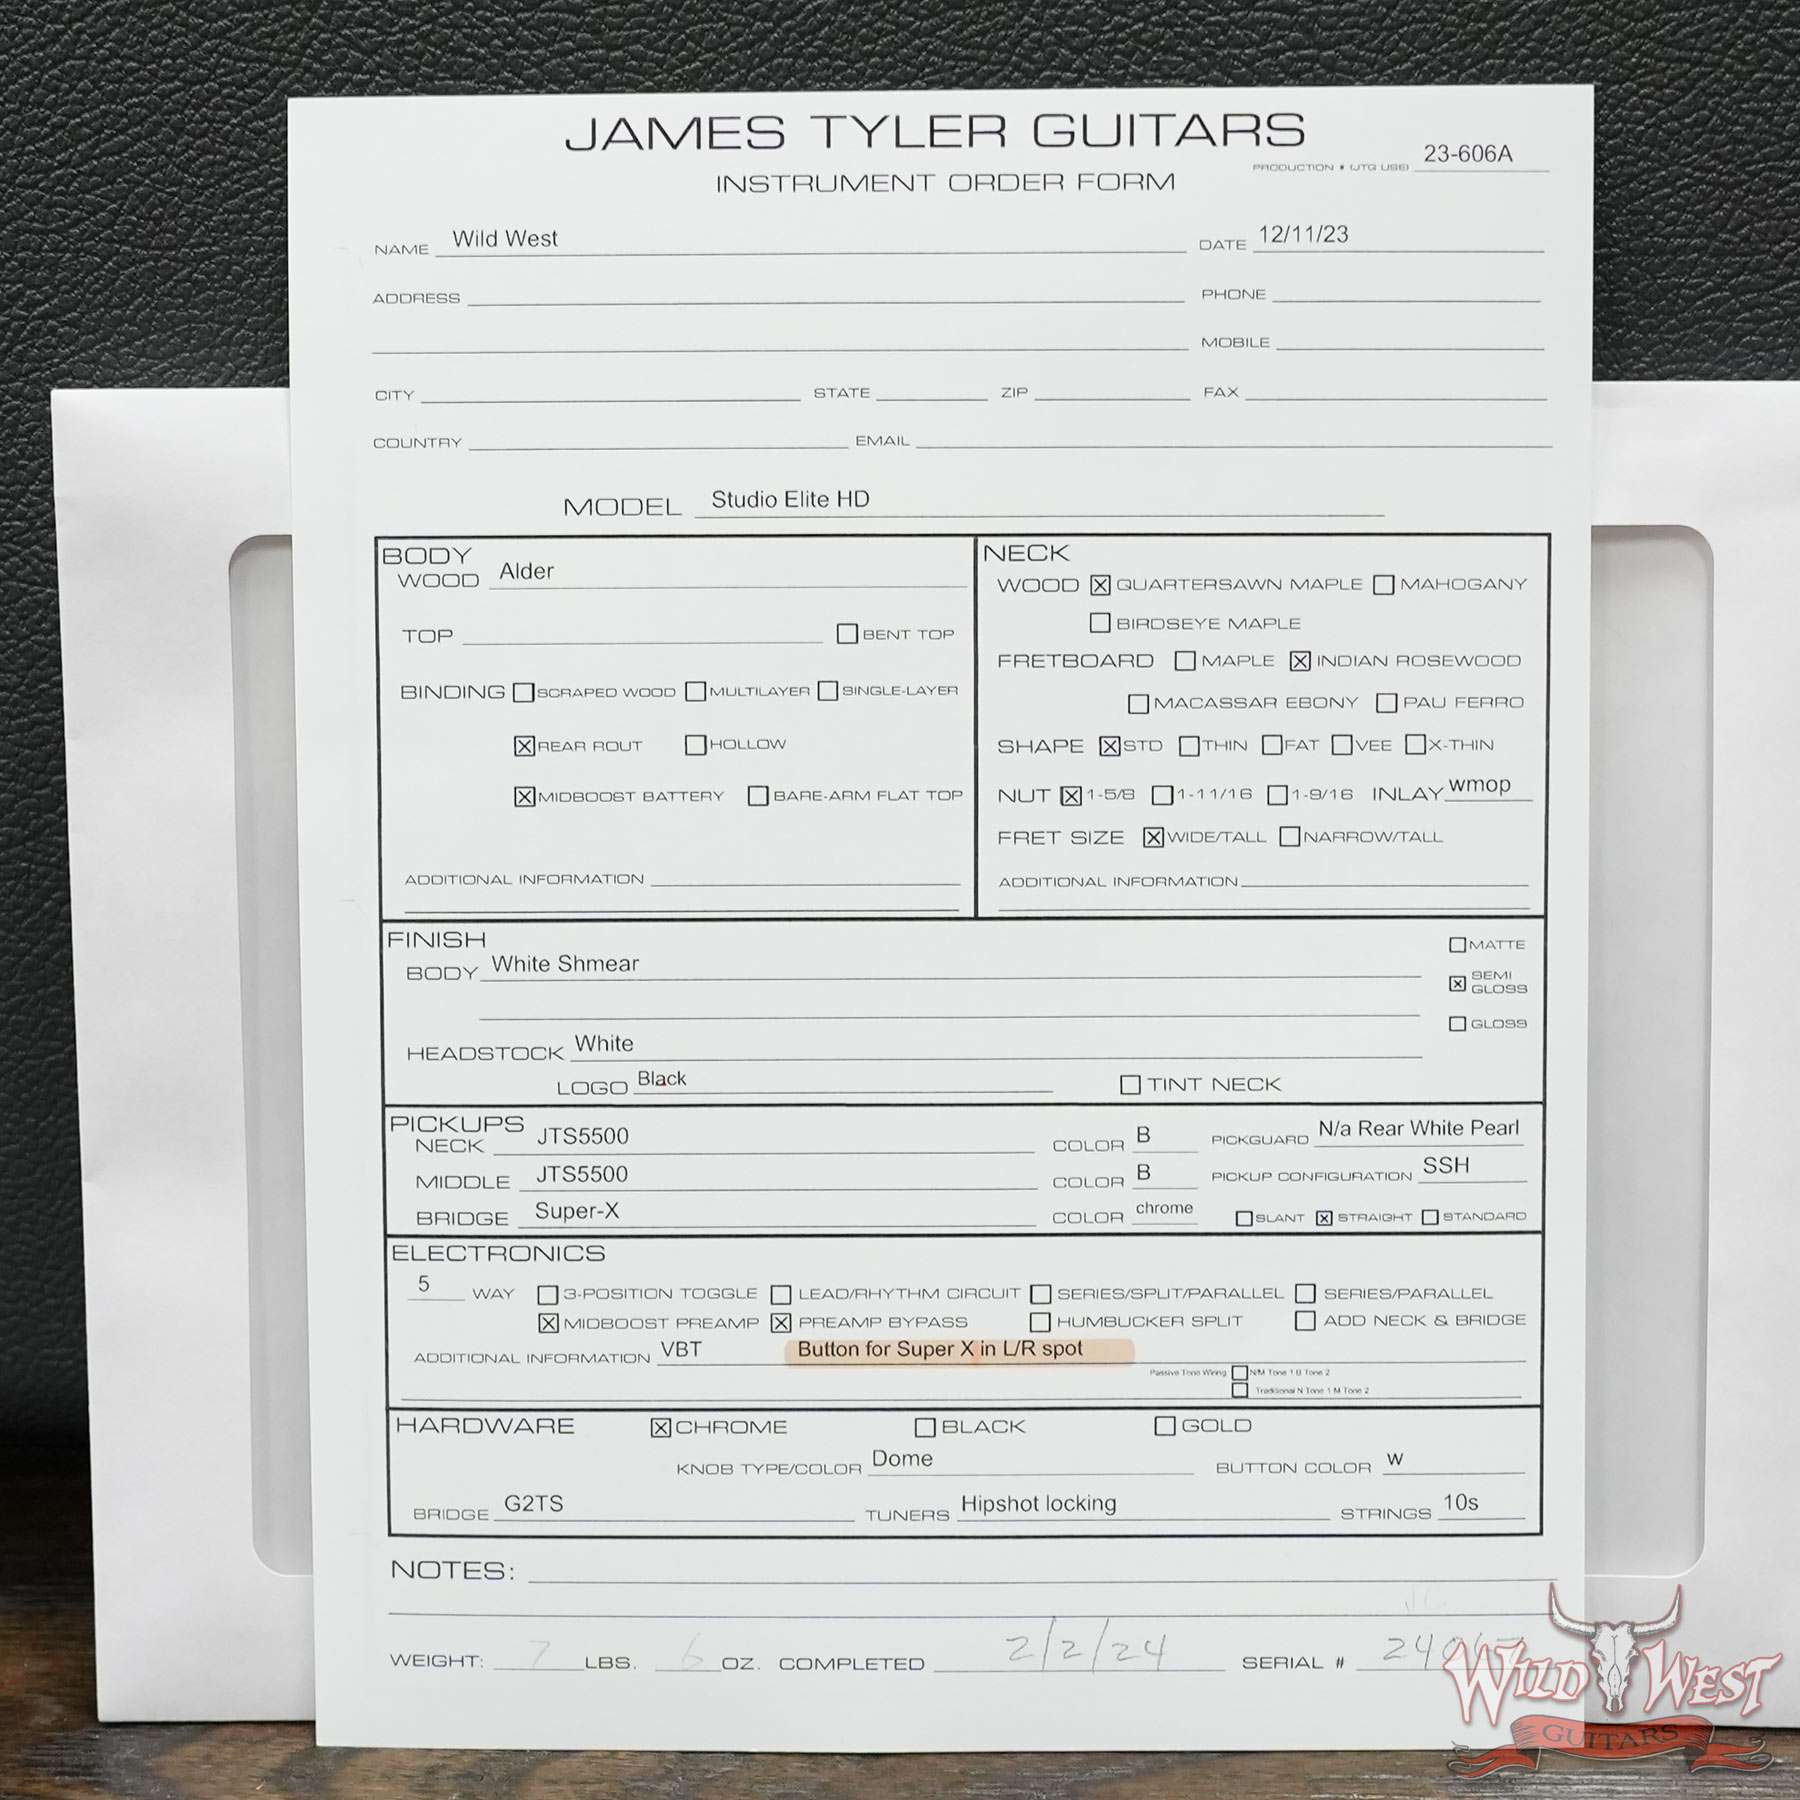 JAMES TYLER GUITARS
PRODUCTION # (JTG USE) 23-606A
INSTRUMENT ORDER FORM
NAME Wild West DATE 12/11/23
ADDRESS PHONE
MOBILE
CITY STATE ZIP FAX
COUNTRY EMAIL
MODEL Studio Elite HD
BODY
WOOD Alder
TOP BENT TOP
BINDING SCRAPED WOOD MULTILAYER SINGLE-LAYER
REAR ROUT HOLLOW
MIDBOOST BATTERY BARE-ARM FLAT TOP
ADDITIONAL INFORMATION
NECK
WOOD QUARTERSAWN MAPLE MAHOGANY
BIRDSEYE MAPLE
FRETBOARD MAPLE INDIAN ROSEWOOD
MACASSAR EBONY PAU FERRO
SHAPE STD THIN FAT VEE X-THIN
NUT 1-5/8 1-11/16 1-9/16 INLAY wmop
FRET SIZE WIDE/TALL NARROW/TALL
ADDITIONAL INFORMATION
FINISH
BODY White Shmear
MATTE
SEMI
GLOSS
GLOSS
HEADSTOCK White
LOGO Black TINT NECK
PICKUPS
NECK JTS5500 COLOR B PICKGUARD N/a Rear White Pearl
MIDDLE JTS5500 COLOR B PICKUP CONFIGURATION SSH
BRIDGE Super-X COLOR chrome SLANT STRAIGHT STANDARD
ELECTRONICS
5 WAY 3-POSITION TOGGLE LEAD/RHYTHM CIRCUIT SERIES/SPLIT/PARALLEL SERIES/PARALLEL
MIDBOOST PREAMP PREAMP BYPASS HUMBUCKER SPLIT ADD NECK & BRIDGE
ADDITIONAL INFORMATION VBT Button for Super X in L/R spot
Passive Tone Wiring N/M Tone 1 B Tone 2
Traditional N Tone 1 M Tone 2
HARDWARE CHROME BLACK GOLD
KNOB TYPE/COLOR Dome BUTTON COLOR w
BRIDGE G2TS TUNERS Hipshot locking STRINGS 10s
NOTES:
WEIGHT: 7 LBS. 6 OZ. COMPLETED 2/2/24 SERIAL #
WILD WEST
GUITARS